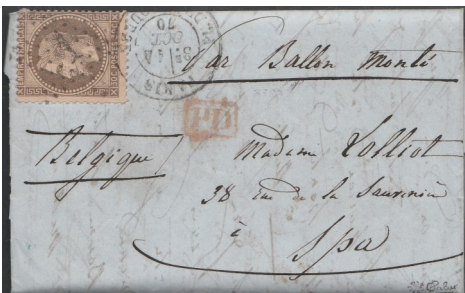 Par Ballon Monté
PD
Belgique
Madame Lolliot
38 rue de la Sauvenière
à
Spa